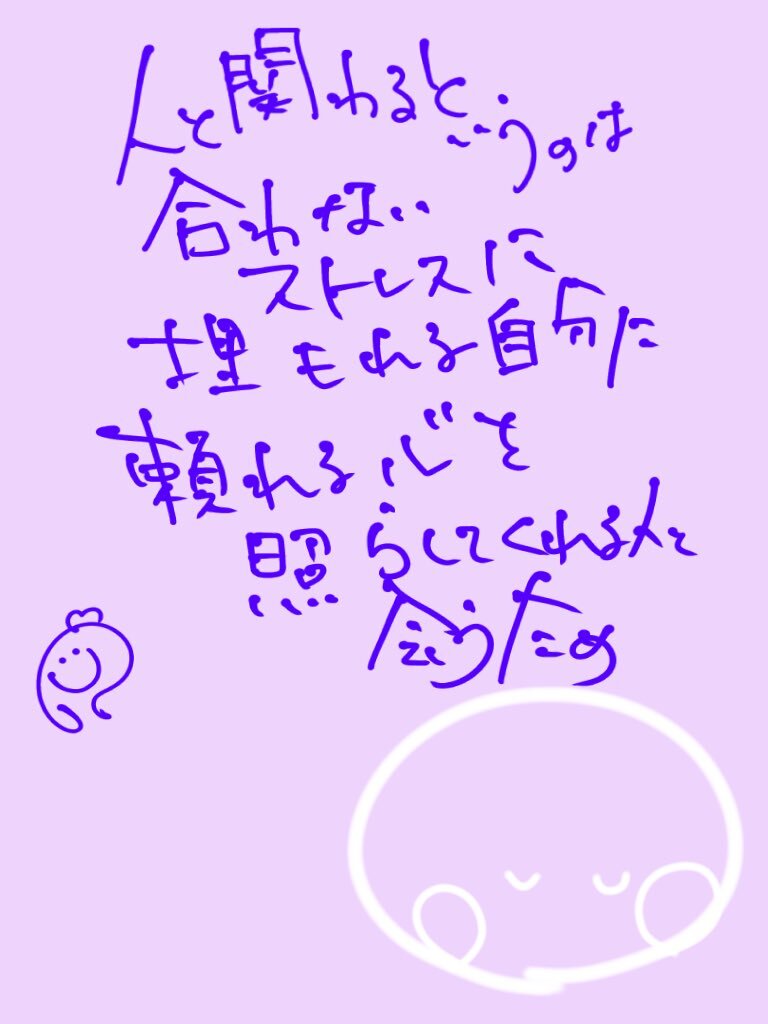 人と関わるというのは
合わない
ストレスに
埋もれる自分に
頼れる心を
照らしてくれる人と
会うため